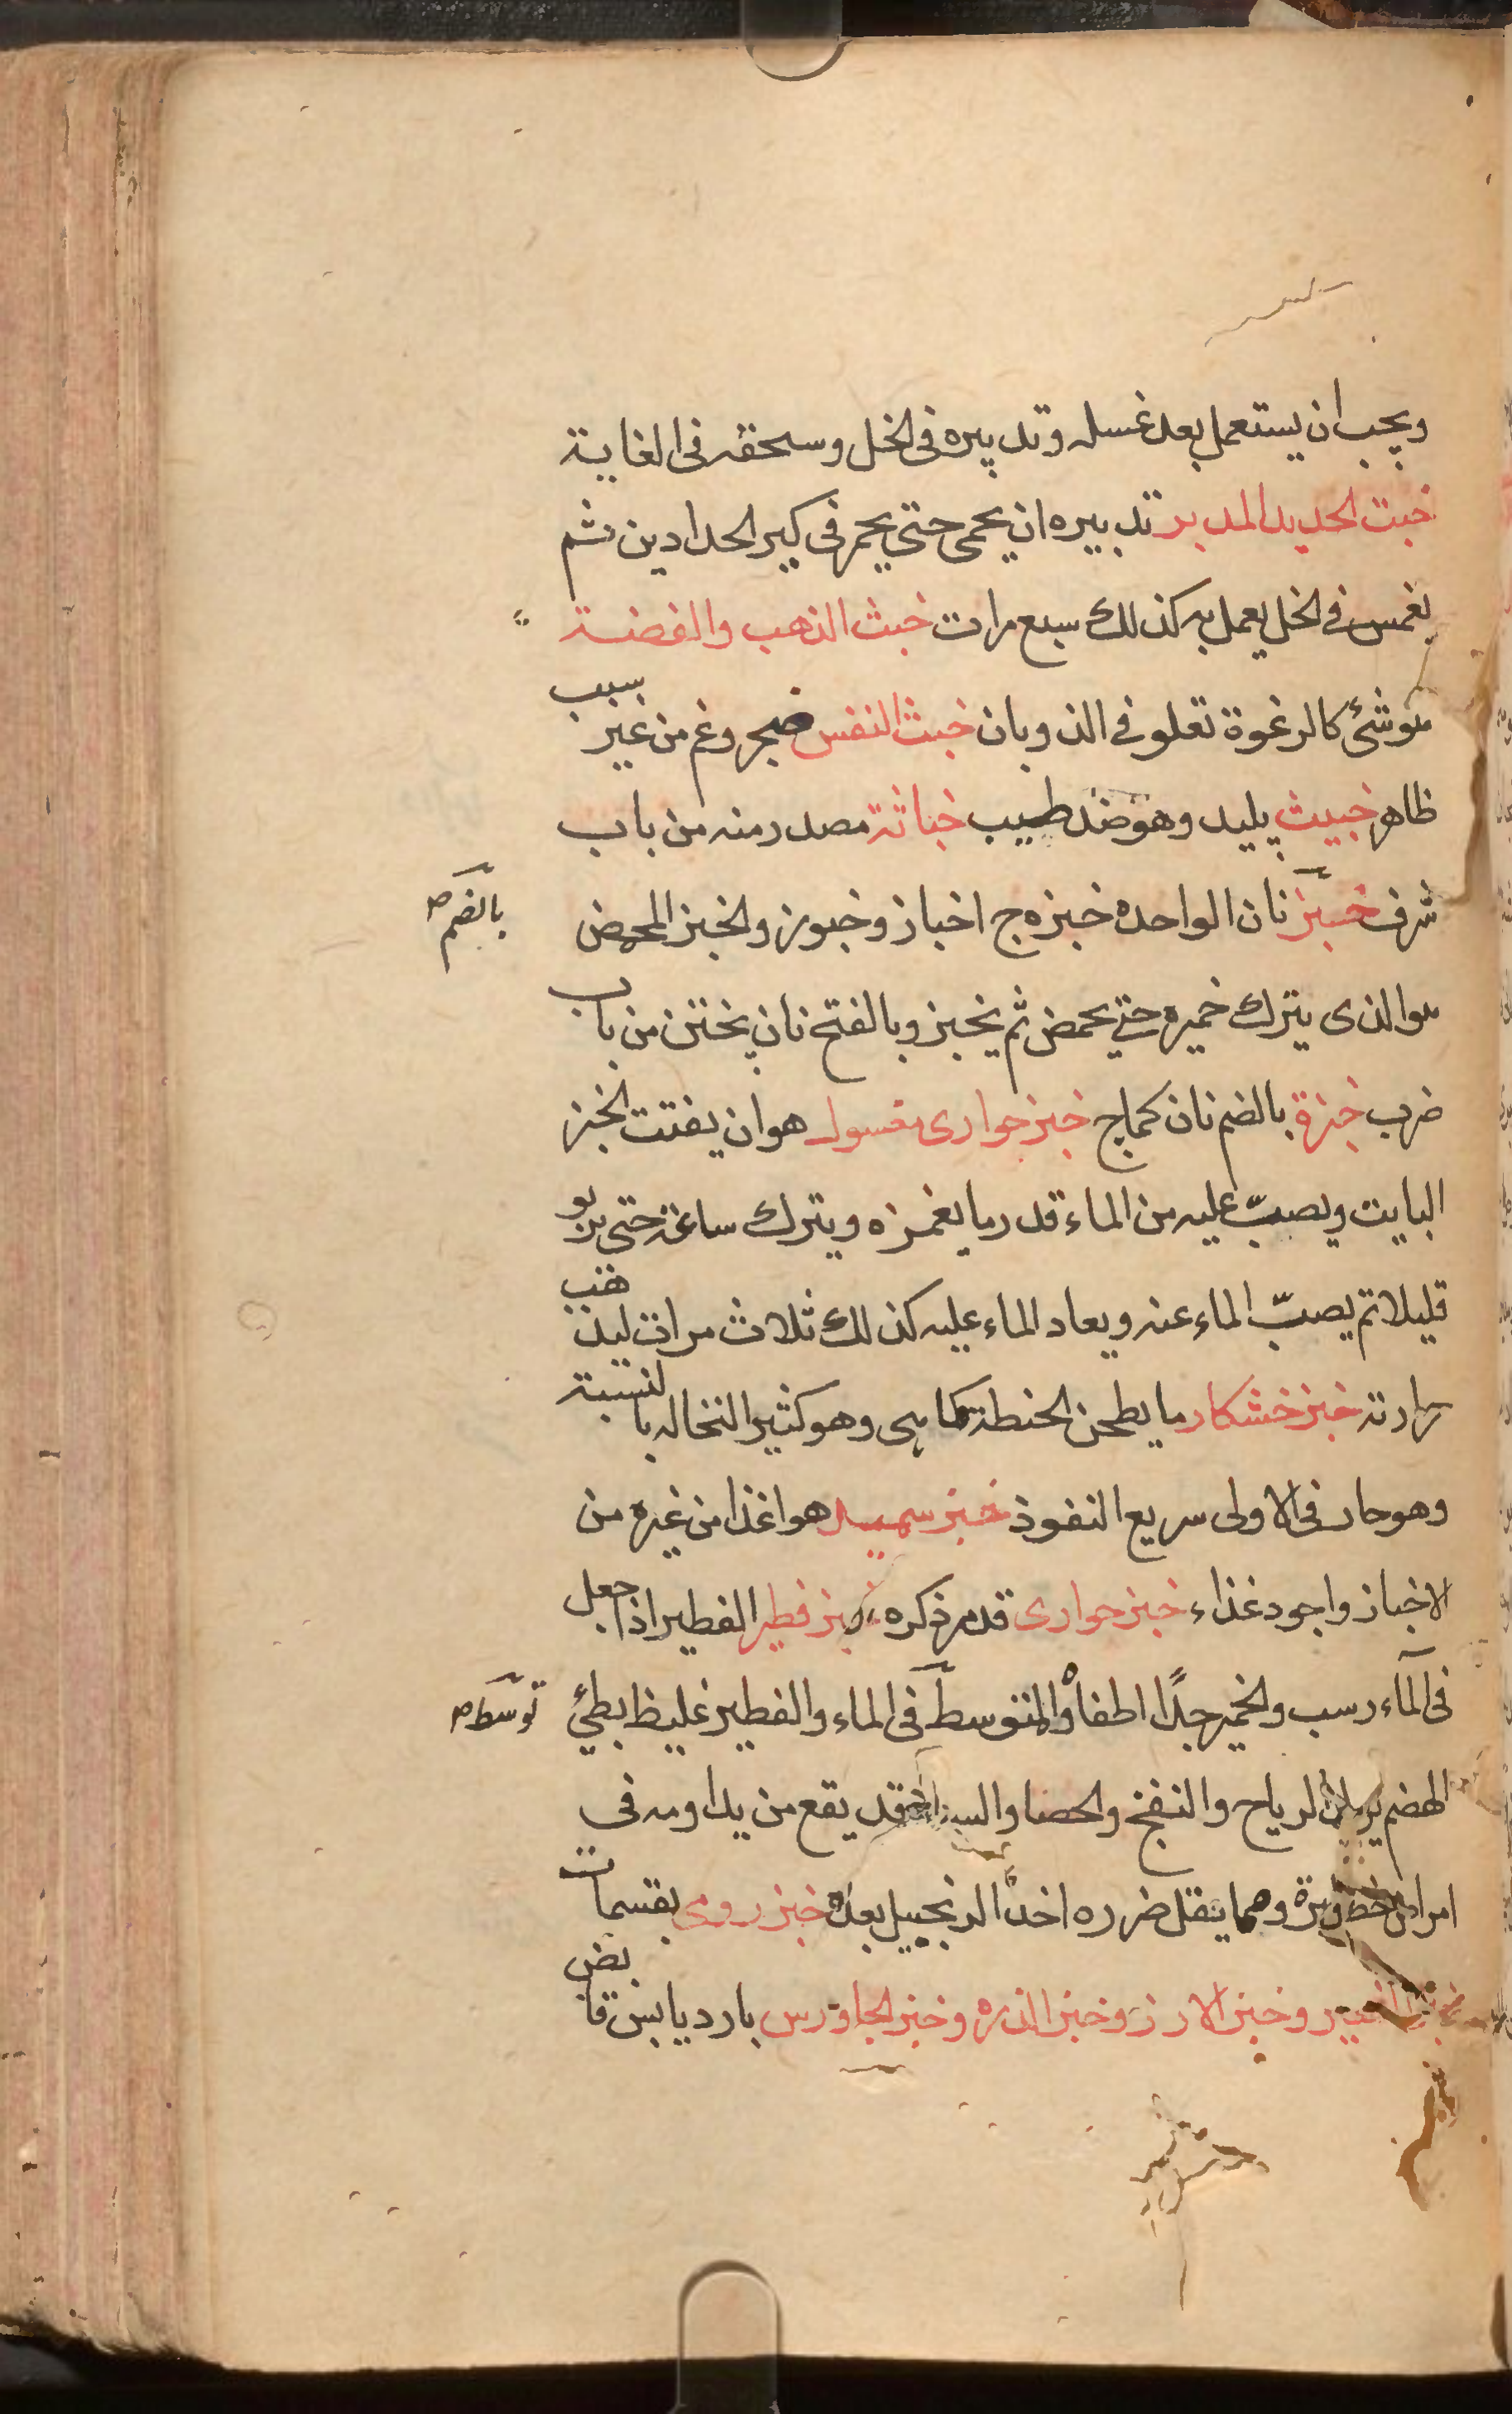 ويجب ان يستعمل بعد غسله وتدبيره فى الخل وسحقه فى الغاية
خبث الحديد المدبر تدبيره ان يحمى حتى يحمر فى كير الحدادين ثم
يغمس فى الخل يعمل به كذلك سبع مرات خبث الذهب والفضة
هو شئ كالرغوة تعلو فى الذوبان خبث النفس ضجر وغم من غير سبب
ظاهر خبيث پليد وهو ضد طيب خباثة مصدر منه من باب
شرف خبز نان الواحده خبزه ج اخباز وخبوز والخبز المحمض
بالضم ص
هو الذى يترك خميره حتى يحمض ثم يخبز وبالفتح نان پختن من باب
ضرب خبزة بالضم نان كماج خبز حوارى مغسول هو ان يفتت الخبز
البايت ويصبّ عليه من الماء قدر ما يغمزه ويترك ساعة حتى يربو
قليلا ثم يصبّ الماء عنه ويعاد الماء عليه كذلك ثلاث مرات ليذهب
حرارته خبز خشكار ما يطحن الحنطة كما هى وهو كثير النخاله بالنسبة
وهو حار فى الاولى سريع النفوذ خبز سميد هو اغذا من غيره من
الاخباز واجود غذاء خبز حوارى قد مر ذكره خبز فطير الفطير اذا جعل
فى الماء رسب والخمير جدًا اطفأ والمتوسط فى الماء والفطير غليظ بطئ
توسط ص
الهضم الرياح والنفخ والحصا قد يقع من يداومه فى
امراض ومما ينقل ضرره اخذ الزنجبيل بعده خبز رومى بقسمات
خبز الشعير وخبز الارز وخبز الذره وخبز الجاورس بارد يابس قابض